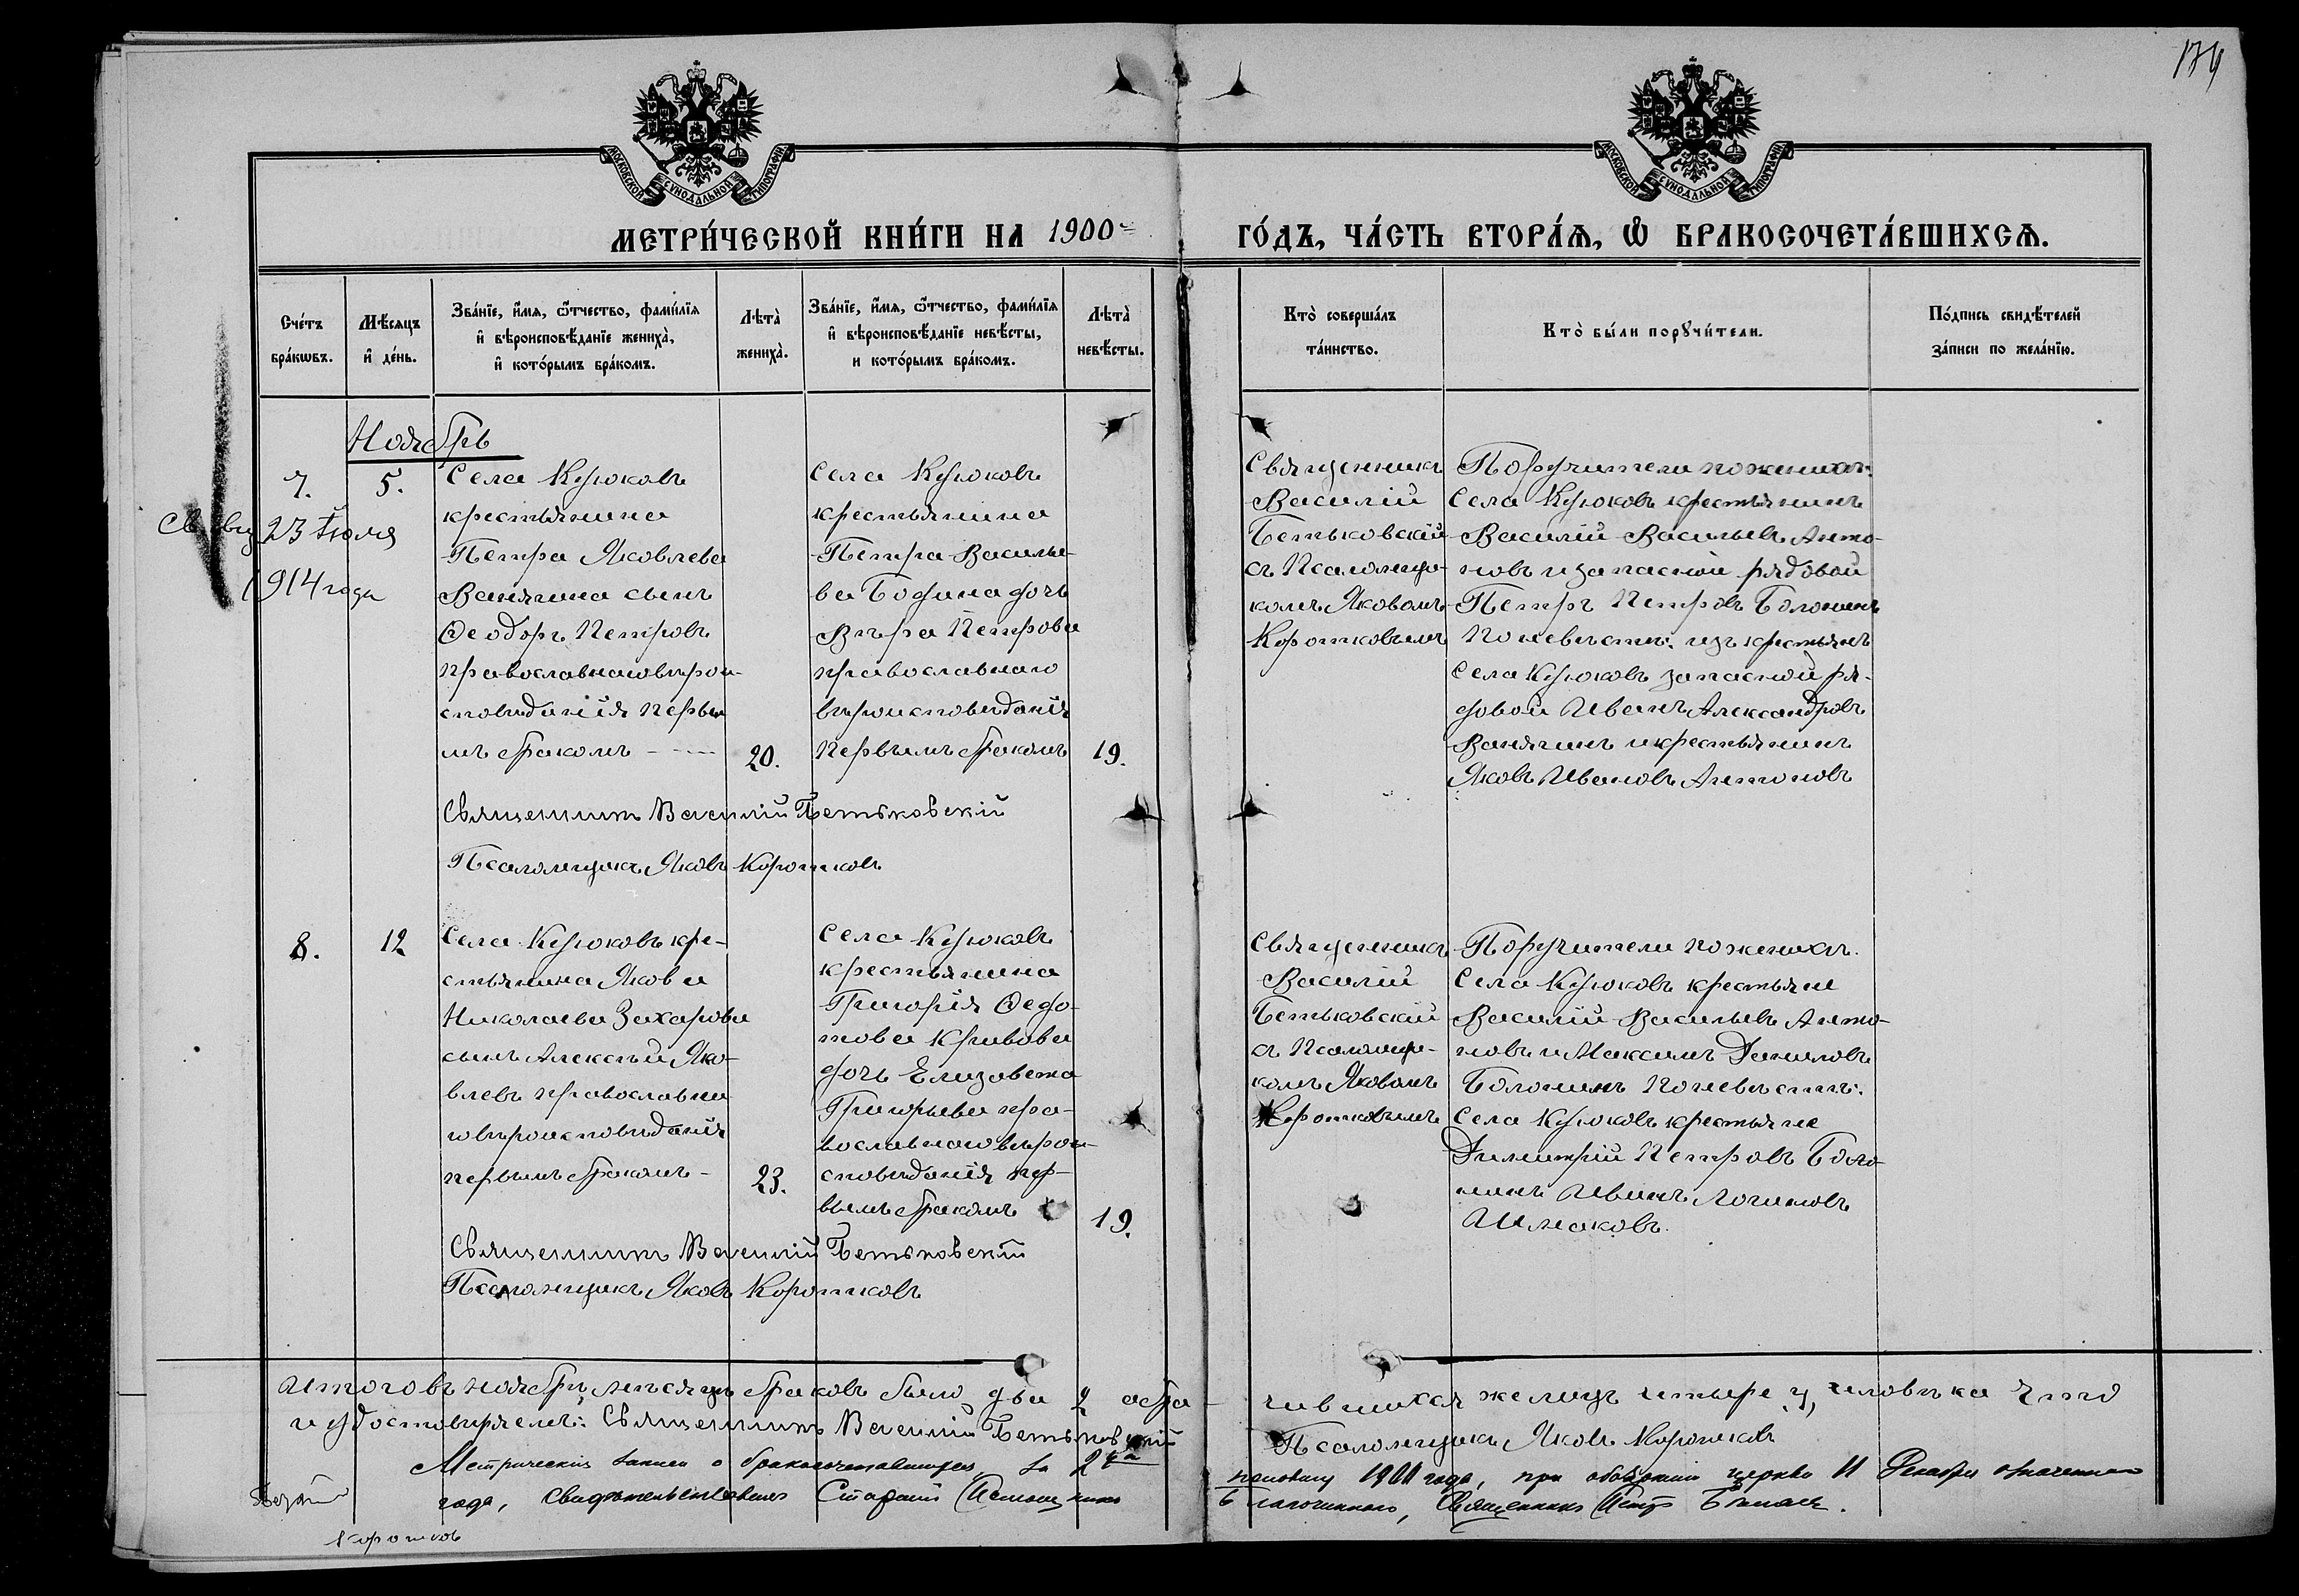 174
МОСКОВСКОЙ СѴНОДАЛЬНОЙ ТИПОГРАФІИ
МОСКОВСКОЙ СѴНОДАЛЬНОЙ ТИПОГРАФІИ
МЕТРИ́ЧЕСКОЙ КНИ́ГИ НА 1900 ГО́ДЪ, ЧА́СТЬ ВТОРА́Ѧ, Ѡ БРАКОСОЧЕТА́ВШИХСѦ.
Сче́тъ
бра́кѡвъ.
Мѣ́сяцъ
и҆ де́нь.
Зва́нїе, и҆́мя, ѻ҆́тчество, фами́лїя
и҆ вѣроисповѣ́данїе жениха̀,
и҆ кото́рымъ бра́комъ.
Лѣта̀
жениха̀.
Зва́нїе, и҆́мя, ѻ҆́тчество, фами́лїя
и҆ вѣроисповѣ́данїе невѣ́сты,
и кото́рымъ бра́комъ.
Лѣта̀
невѣ́сты.
Кто̀ соверша́лъ
та́инство.
Кто̀ бы́ли порꙋчи́тели.
По́дпись свидѣ́телей
за́писи по жела́нїю.
Ноябрь
7.
5.
23 Іюля
1914 года
Села Крюковъ
крестьянина
Петра Яковлева
Ванягина сынъ
Ѳеодоръ Петровъ
православнаго вѣрои-
сповѣданія первы
мъ бракомъ
20.
Села Крюковъ
крестьянина
Петра Василье
ва Бодина дочь
Вѣра Петрова
православнаго
вѣроисповѣданія
Первымъ бракомъ
19.
Священникъ
Василій
Бетьковскій
съ Псаломщи-
комъ Яковомъ
Коротковымъ
Поручители по женихѣ:
Села Крюковъ крестьянинъ
Василій Васильевъ Анто-
новъ и запасной рядовой
Петръ Петровъ Болонинъ
По невѣстѣ: изъ крестьянъ
Села Крюковъ запасной ря-
довой Иванъ Александровъ
Ванягинъ и крестьянинъ
Яковъ Ивановъ Антоновъ
Священникъ Василій Бетьковскій
Псаломщикъ Яковъ Коротковъ
8.
12
Села Крюковъ кре-
стьянина Якова
Николаева Захарова
сынъ Алексѣй Яко-
влевъ православна
го вѣроисповѣданія
первымъ бракомъ -
23.
Села Крюковъ
крестьянина
Григорія Ѳедо-
това Кривова
дочь Елизавета
Григорьева пра-
вославнаго вѣрои-
сповѣданія пер-
вымъ бракомъ
19.
Священникъ
Василій
Бетьковскій
съ Псаломщи-
комъ Яковомъ
Коротковымъ
Поручители по женихѣ.
Села Крюковъ крестьяне
Василій Васильевъ Анто-
новъ и Максимъ Даниловъ
Болонинъ По невѣстѣ:
Села Крюковъ крестьяне
Димитрій Петровъ Боло-
нинъ Иванъ Логиновъ
Священникъ Василій Бетьковскій
Псаломщикъ Яковъ Коротковъ
Итого въ ноябрѣ мѣсяцѣ браковъ было два 2 а бра чившихся же лицъ четыре 4, человѣка Что
и удостовѣряемъ: Священникъ Василій Бетьковскій Псаломщикъ Яковъ Коротковъ
Метрическія записи о бракосочетавшихся за 2 ую половину 1900 года, при обозрѣніи церкви 11 Декабря означеннаго
года, свидѣтельствовалъ Старшій Помощникъ Благочиннаго, Священникъ Петръ
Коротковъ